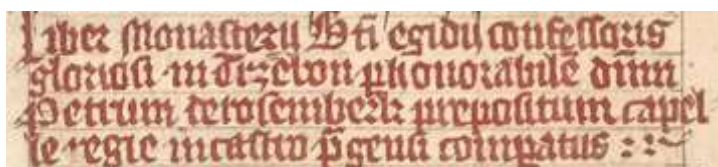 Liber Monasterii Bti egidii confessoris
gloriosi in Trzebon p honorabilē dnm
Petrum de rosemberk prepositum capel
le regie in castro pgensi compatus :